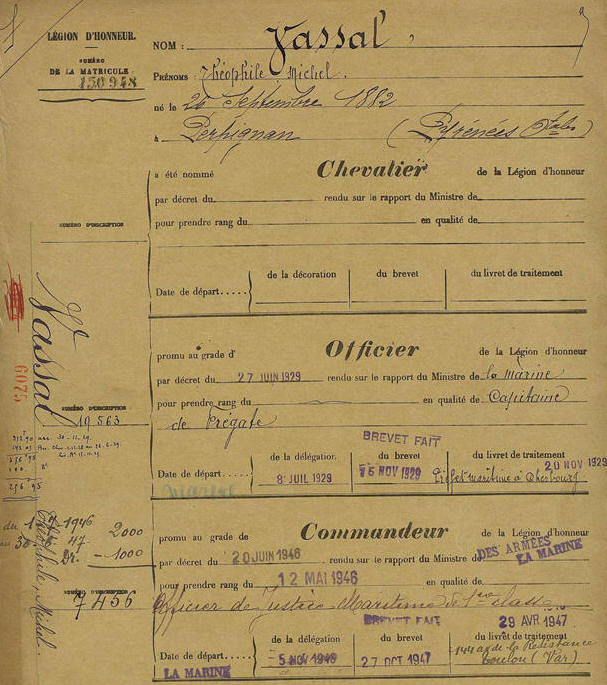 LÉGION D'HONNEUR.
NUMÉRO
DE LA MATRICULE
150948
NOM : Vassal,
PRÉNOMS : Théophile Michel.
né le 26 Septembre 1882
à Perpignan (Pyrénées Ales)
a été nommé Chevalier de la Légion d'honneur
par décret du rendu sur le rapport du Ministre de
pour prendre rang du en qualité de
NUMÉRO D'INSCRIPTION
de la décoration du brevet du livret de traitement
Date de départ.....
Vassal
Théophile, Michel.
6075
promu au grade d' Officier de la Légion d'honneur
par décret du 27 JUIN 1929 rendu sur le rapport du Ministre de la Marine
pour prendre rang du en qualité de Capitaine
de Frégate
NUMÉRO D'INSCRIPTION
19563
BREVET FAIT
de la délégation. du brevet du livret de traitement
20 NOV 1929
Date de départ..... 8 JUIL 1929 15 NOV 1929 Préfet maritime à Cherbourg
Marine
promu au grade de Commandeur de la Légion d'honneur
par décret du 20 JUIN 1946 rendu sur le rapport du Ministre DES ARMÉES
LA MARINE
pour prendre rang du 12 MAI 1946 en qualité de
Officier de Justice Maritime de 1re classe
1946
2000
47
1000
NUMÉRO D'INSCRIPTION
7456
BREVET FAIT 29 AVR 1947
de la délégation du brevet du livret de traitement
Date de départ..... 5 NOV 1946 27 OCT 1947 144 av de la Résistance
Toulon (Var)
LA MARINE